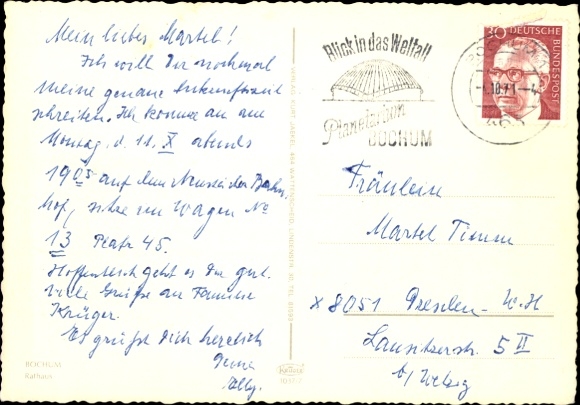 Mein liebes Martel!
Ich will Dir nochmal
meine genaue Ankunftszeit
schreiben. Ich komme an am
Montag, d. 11. X abends
19 05 auf dem Neustädter Bahn-
hof, sitze im Wagen No
13 Platz 45.
Hoffentlich geht es Dir gut.
Viele Grüße an Familie
Krüger.
Es grüßt Dich herzlich
Deine
BOCHUM
Rathaus
Blick in das Weltall
Planetarium
BOCHUM
30 DEUTSCHE BUNDESPOST
463
Fräulein
Martel Timm
x 8051 Dresden - W.H
Lausitzerstr. 5 II
b/